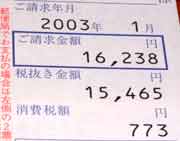 ご請求年月
2003 年 1 月
ご請求金額 円
16,238
税抜き金額 円
15,465
消費税額 円
773
郵便局でお支払の場合は左側の2票